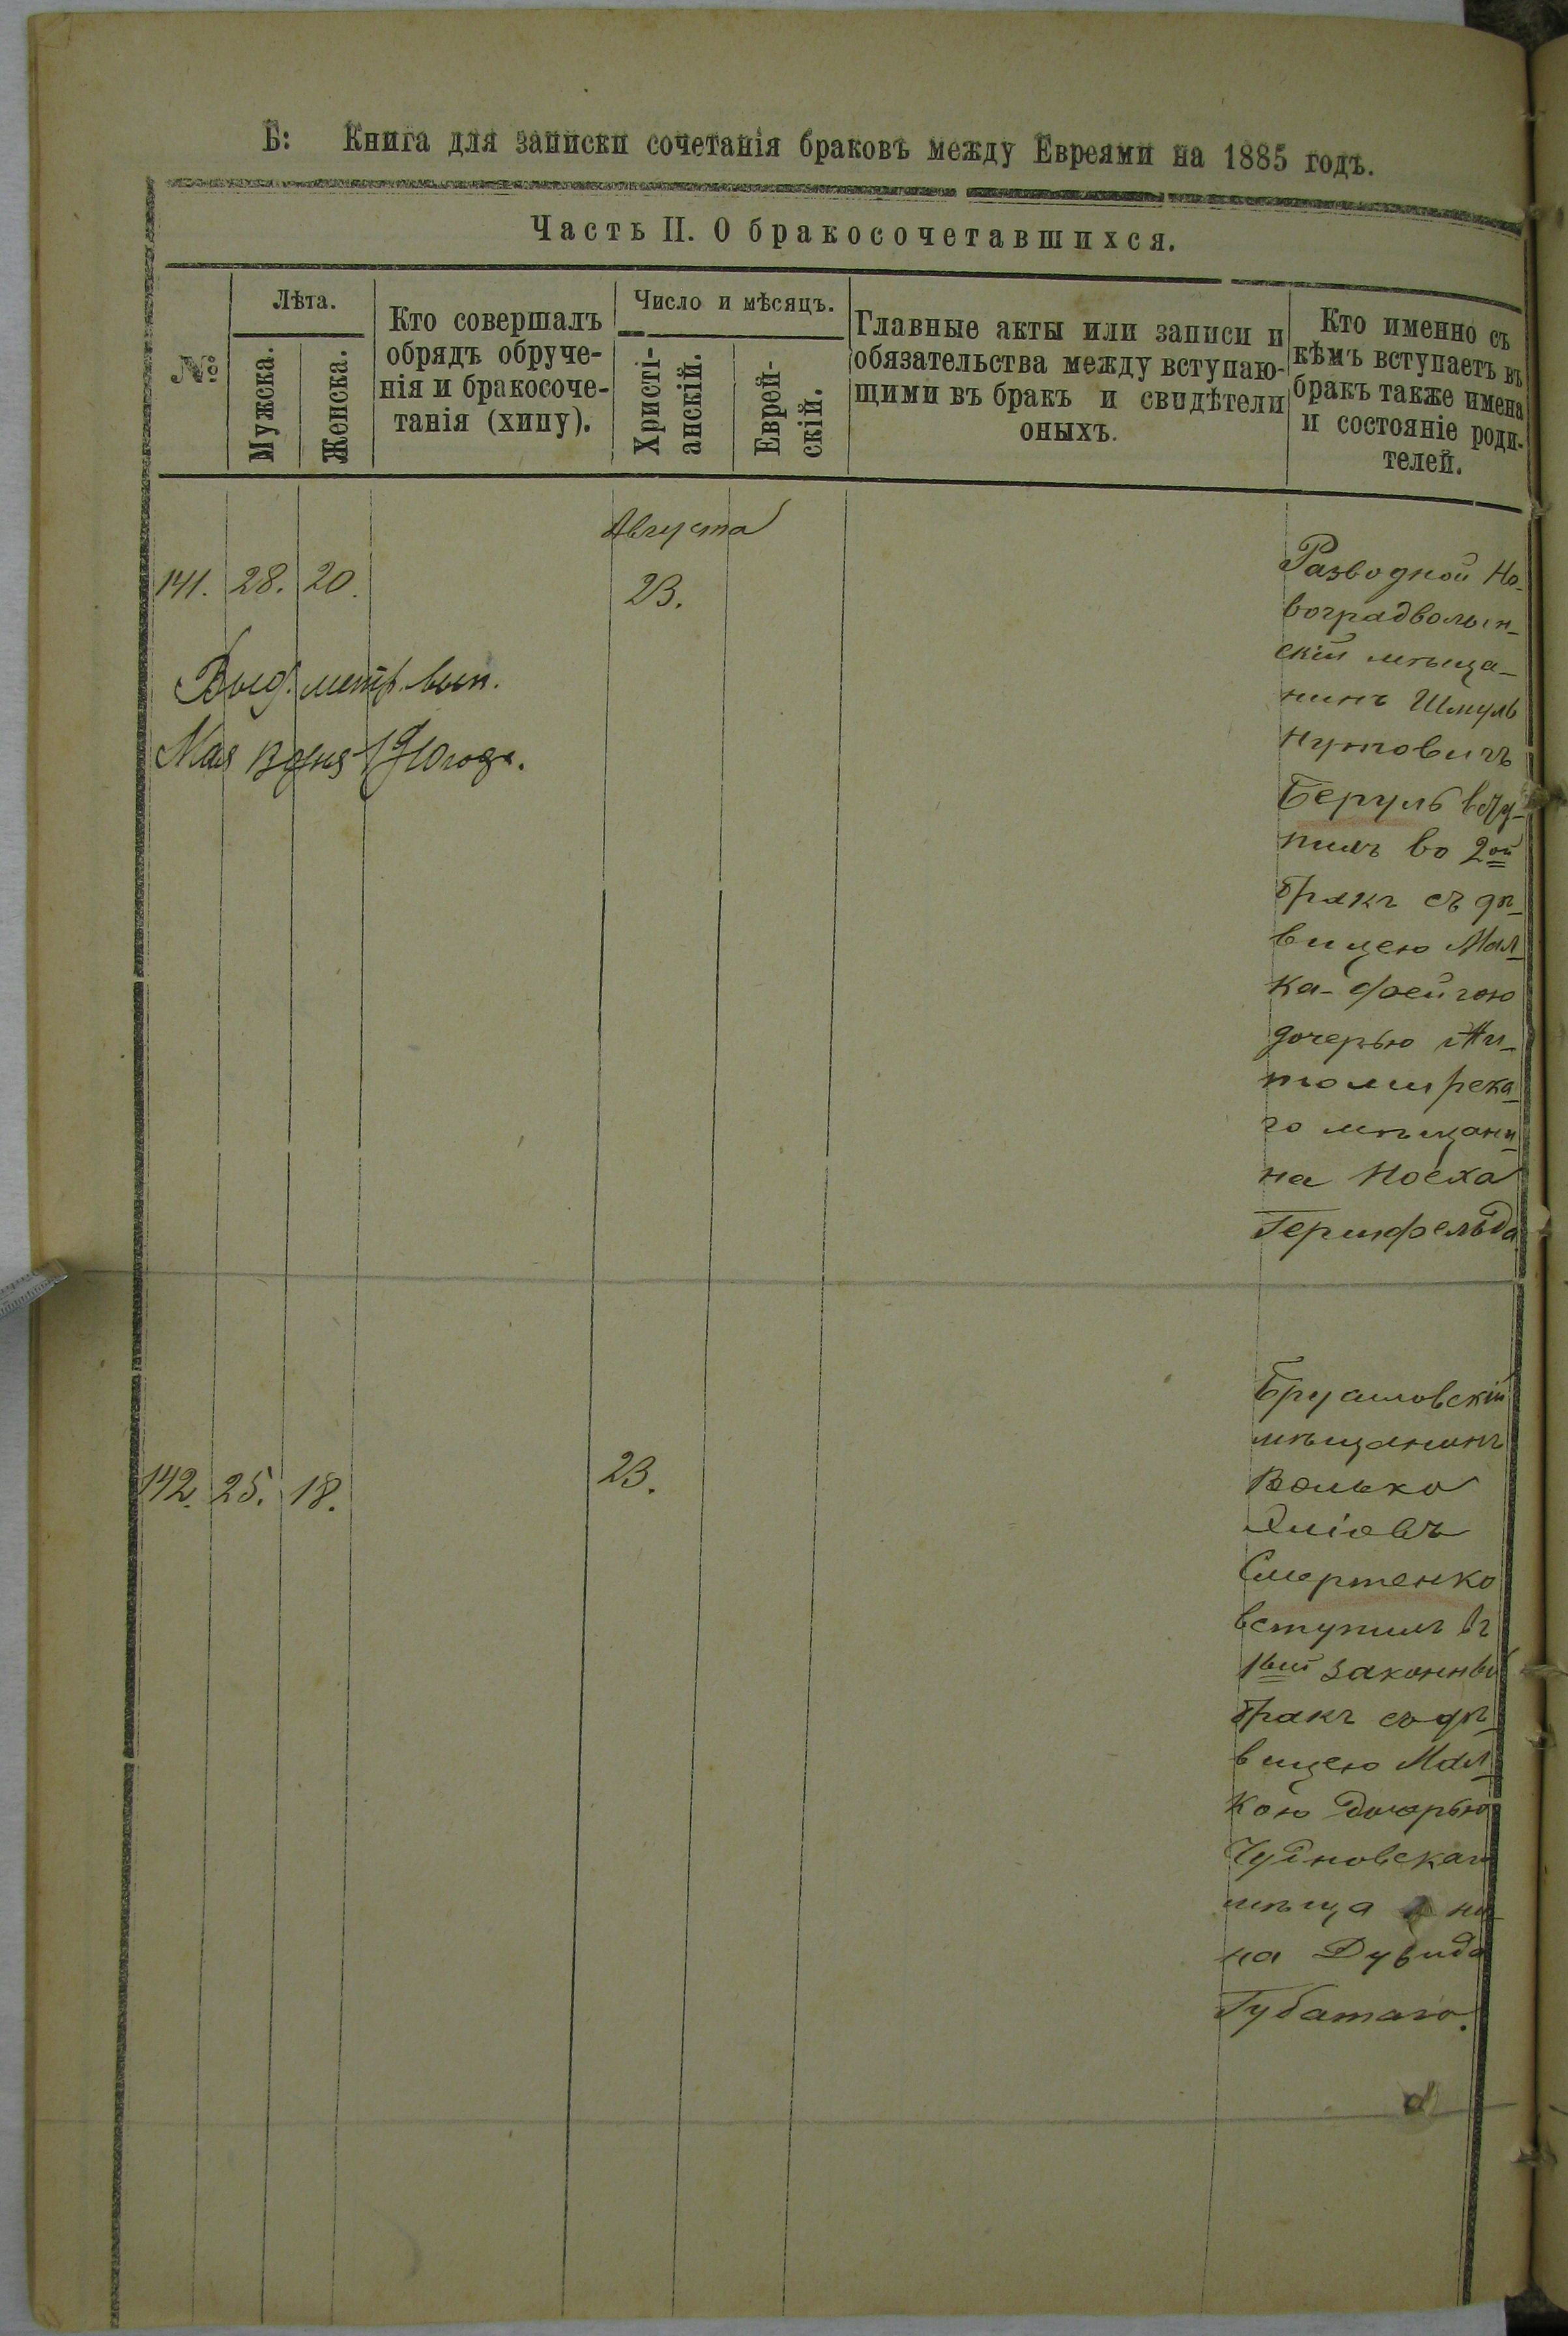 Б: Книга для записки сочетанія браковъ между Евреями на 1885 годъ.
Часть II. О бракосочетавшихся.
№
Лѣта.
Мужска.
Женска.
Кто совершалъ
обрядъ обруче-
нія и бракосоче-
танія (хипу).
Число и мѣсяцъ.
Христі-
анскій.
Еврей-
скій.
Главные акты или записи и
обязательства между вступаю-
щими въ бракъ и свидѣтели
оныхъ.
Кто именно съ
кѣмъ вступаетъ въ
бракъ также имена
и состояніе роди-
телей.
Августа
141. 28. 20. 23.
Выд. метр. вып.
Мая 1910 года.
Разводной Но-
воградволын-
скій мѣща-
нинъ Шмуль
Нутовичъ
Беруль всту-
пилъ во 2ой
бракъ съ дѣ-
вицею Мал-
ка-Фейгою
дочерью Жи-
томирска-
го мѣщани-
на Ноеха
Геринфельда
142. 25. 18. 23.
Брусиловскій
мѣщанинъ
Волько
Смертенко
вступилъ въ
1вый законный
бракъ съ дѣ-
вицею Мал-
кою дочерью
Чудновскаго
мѣща ни-
на Дувида
Губатаго.